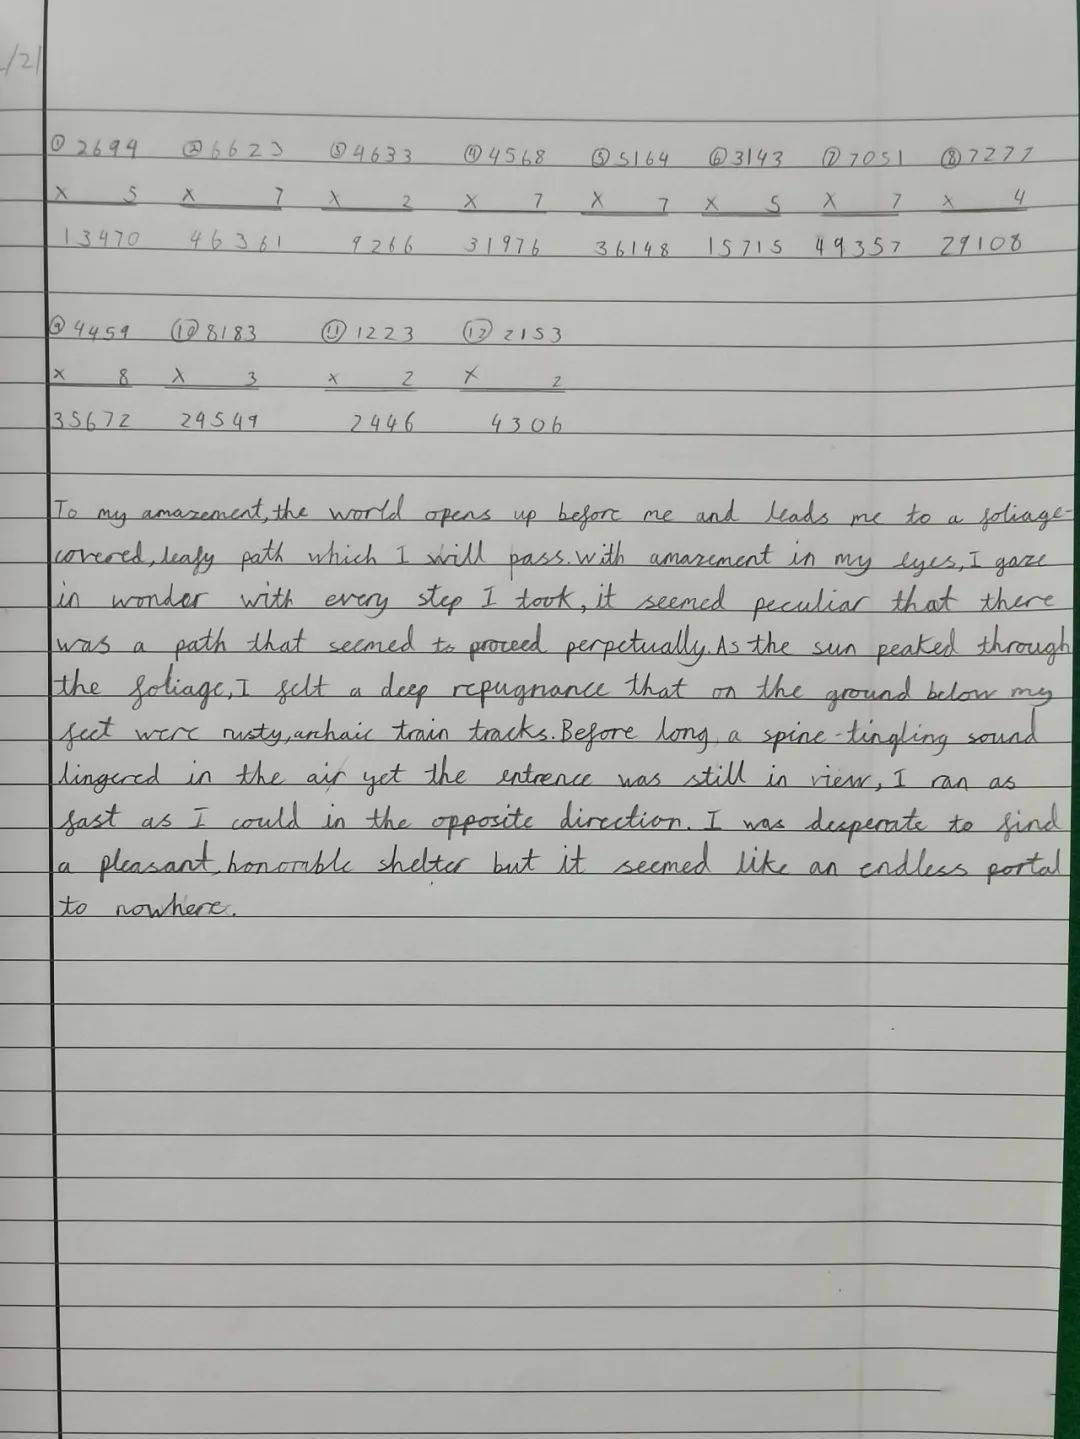 /21
① 2694 ② 6623 ③ 4633 ④ 4568 ⑤ 5164 ⑥ 3143 ⑦ 7051 ⑧ 7277
x 5 x 7 x 2 x 7 x 7 x 5 x 7 x 4
13470 46361 9266 31976 36148 15715 49357 29108
⑨ 4459 ⑩ 8183 ⑪ 1223 ⑫ 2153
x 8 x 3 x 2 x 2
35672 24549 2446 4306
To my amazement, the world opens up before me and leads me to a foliage-
covered, leafy path which I will pass. With amazement in my eyes, I gaze
in wonder with every step I took, it seemed peculiar that there
was a path that seemed to proceed perpetually. As the sun peaked through
the foliage, I felt a deep repugnance that on the ground below my
feet were rusty, archaic train tracks. Before long, a spine-tingling sound
lingered in the air yet the entrence was still in view, I ran as
fast as I could in the opposite direction. I was desperate to find
a pleasant, honorable shelter but it seemed like an endless portal
to nowhere.